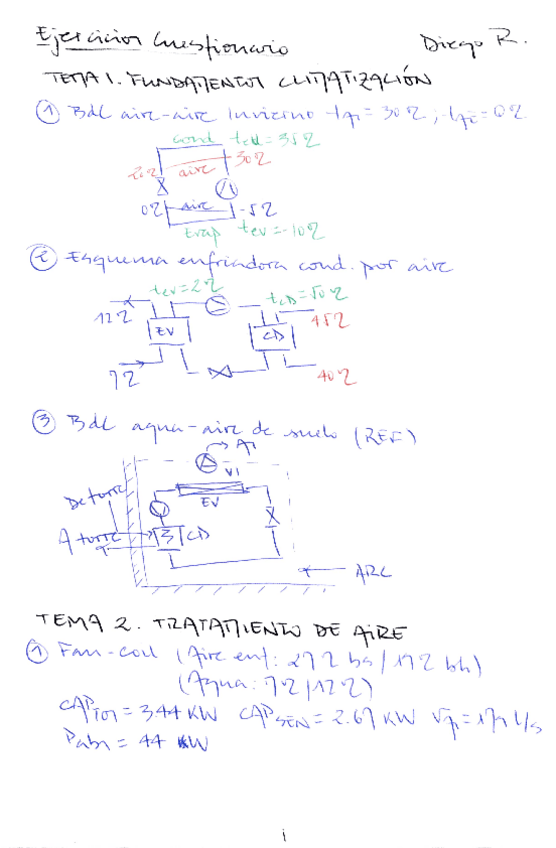 Ejercicios Cuestionario
Diego R.
TEMA 1. FUNDAMENTOS CLIMATIZACIÓN
① BdC aire-aire Invierno
cond
aire
30ºC
0ºC
aire
-5ºC
Evap tev=-10ºC
② Esquema enfriadora cond. por aire
tev=2ºC
tCD=50ºC
12ºC
EV
CD
45ºC
7ºC
40ºC
③ BdC agua-aire de suelo (REF)
AI
VI
De torre
EV
A torre
CD
ARC
TEMA 2. TRATAMIENTO DE AIRE
① Fan-coil (Aire ent: 27ºC bs / 19ºC bh)
(Agua: 7ºC / 12ºC)
CAP TOT = 3.44 KW CAP SEN = 2.67 KW
Pabs = 44 KW
i